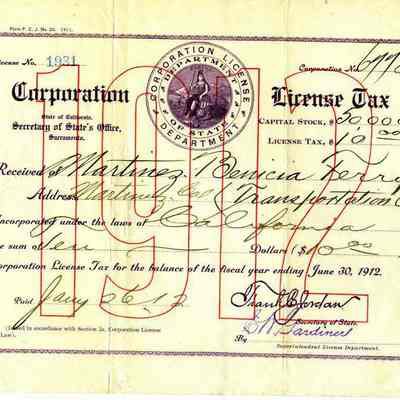 Form P. Z. J. No. 20.
License No. 1931
Corporation No. 
1912
CORPORATION LICENSE DEPARTMENT
DEPARTMENT OF STATE
Corporation
License Tax
State of California.
Secretary of State's Office,
Sacramento.
CAPITAL STOCK, $50,000
LICENSE TAX, $10.00
Received of Martinez Benicia Ferry
Address Martinez, Cal Transportation
Incorporated under the laws of California
the sum of Ten Dollars ($10.00
Corporation License Tax for the balance of the fiscal year ending June 30, 1912.
Paid Jany 26 12
Frank C Jordan
Secretary of State.
(Issued in accordance with Section 2a, Corporation License
Law).
By
Superintendent License Department.